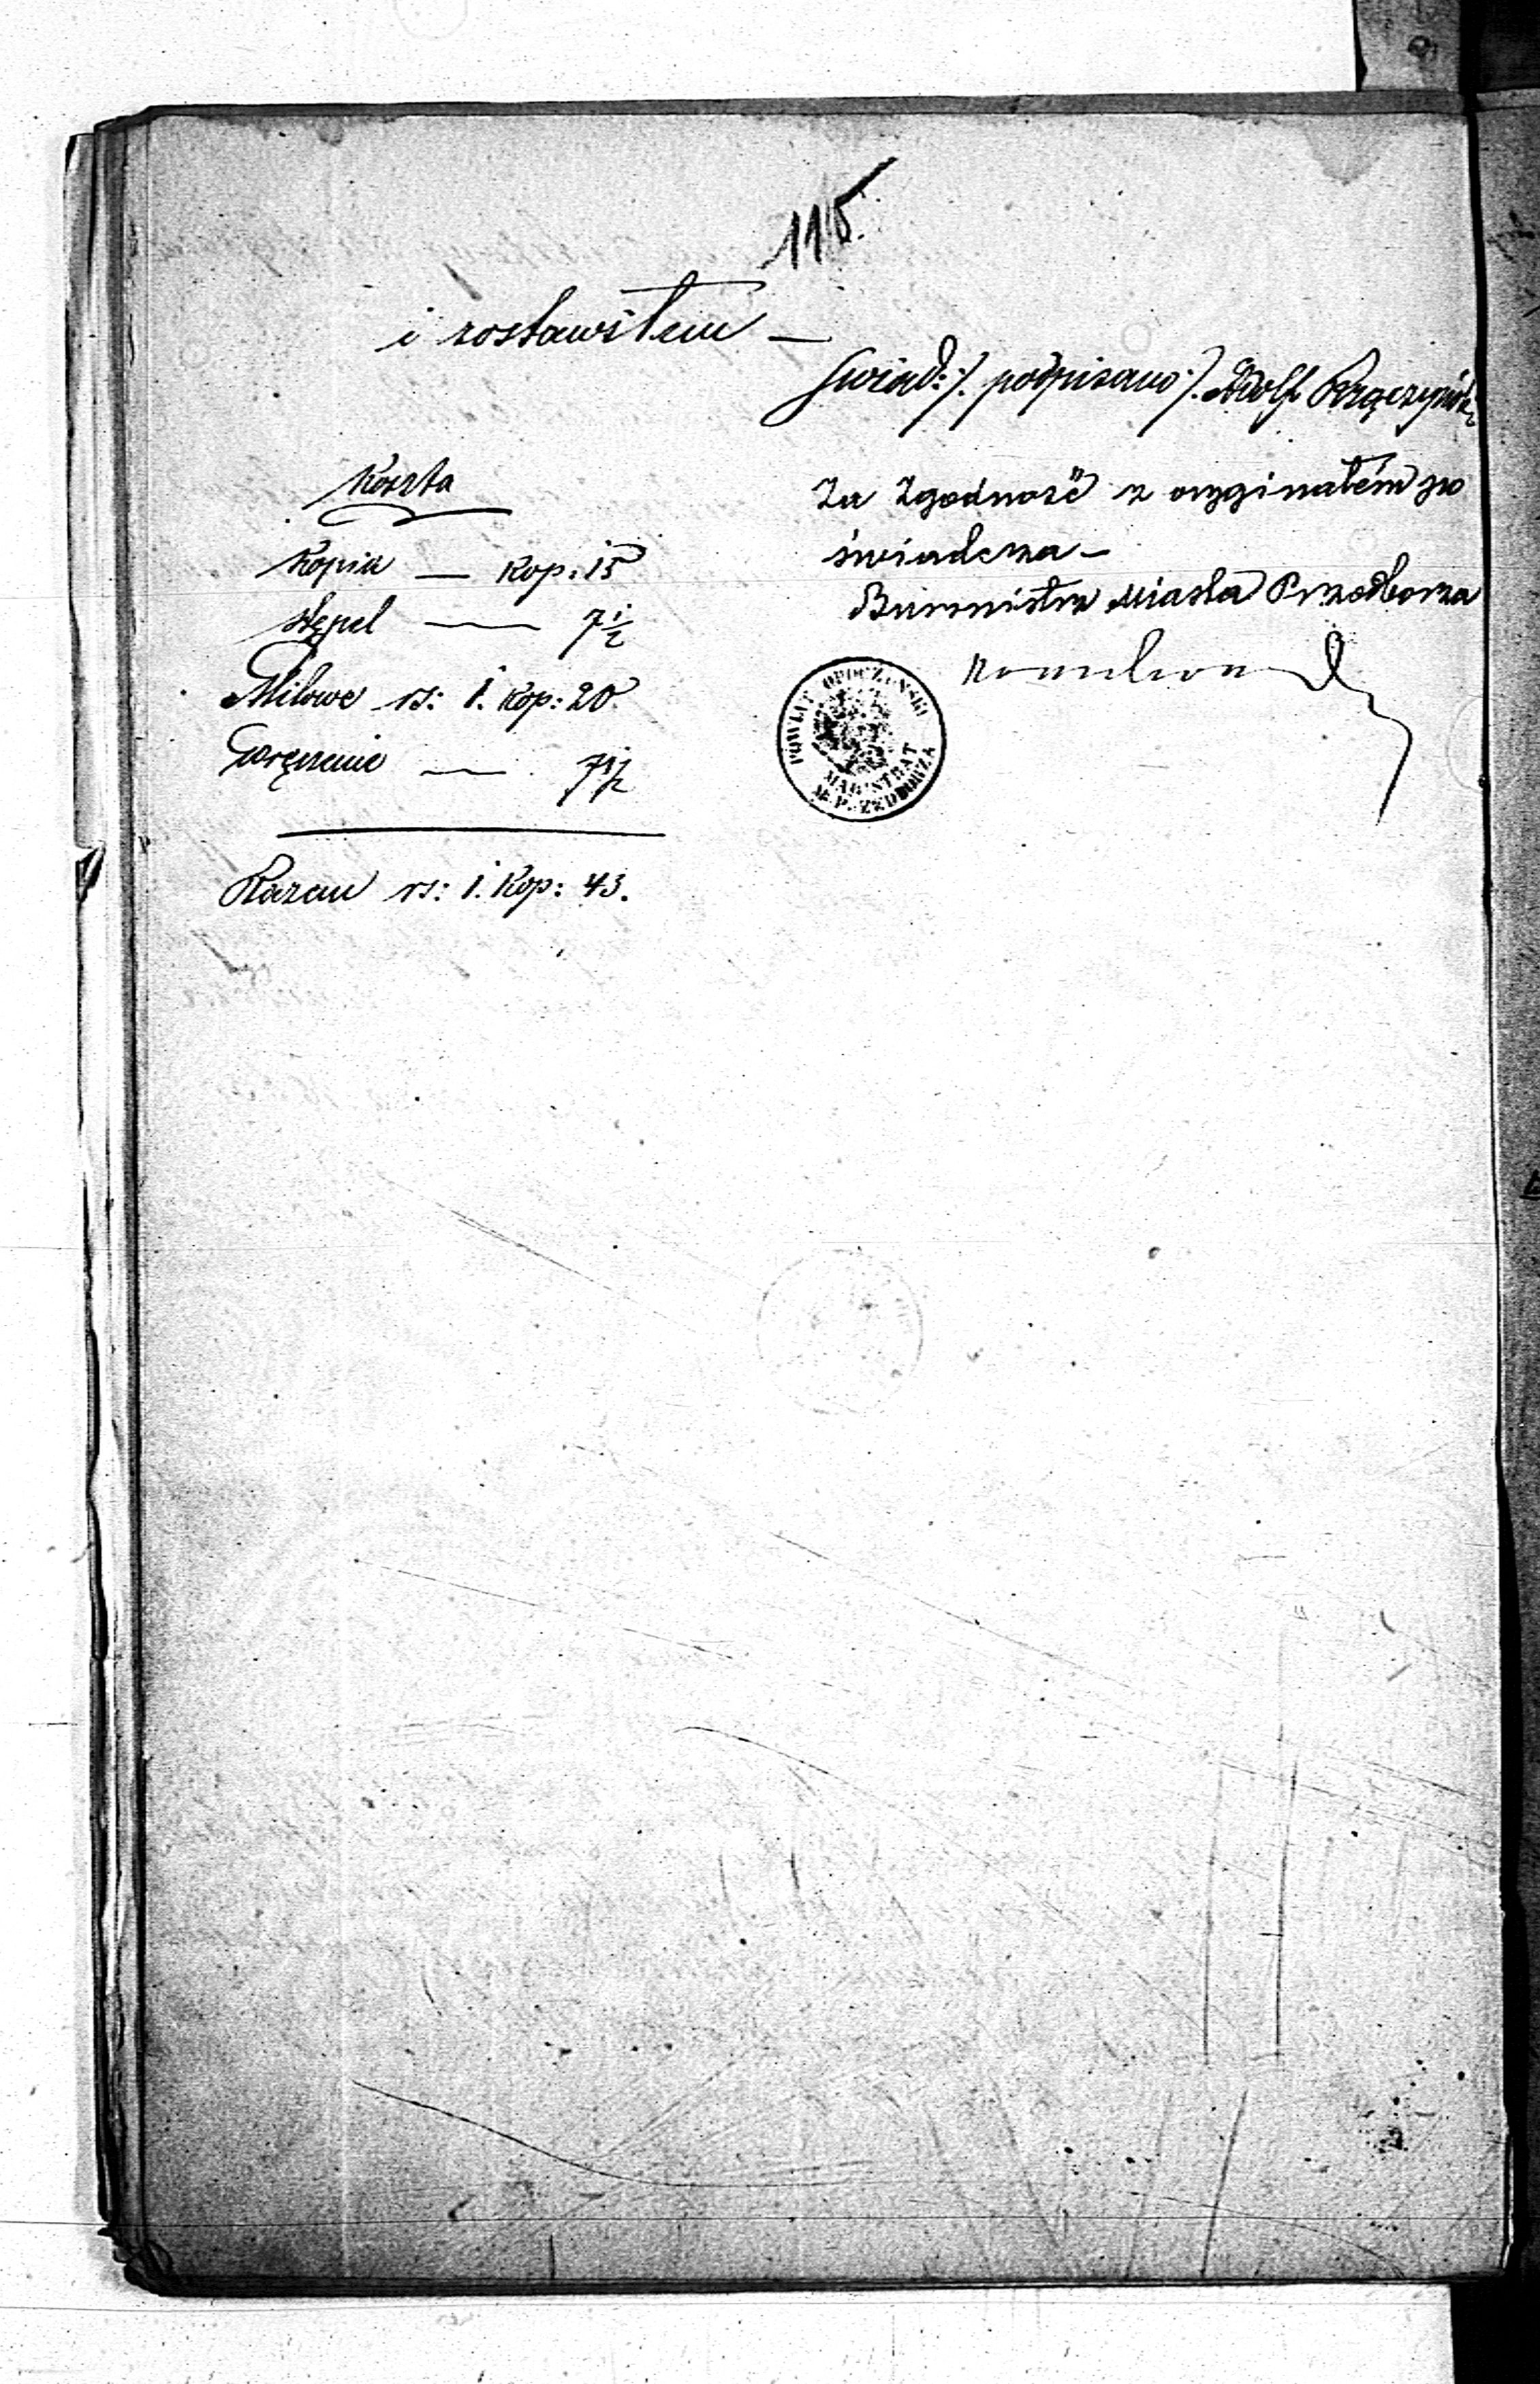 115.
i zostawiłem —
Świad: /. podpisano ./. Adolf
Za Zgodność z oryginałem po
świadcza —
Burmistrz Miasta Przedborza
Koszta
Kopia — kop: 15
stępel — 7 1/2
Milowe rs: 1. kop: 20.
Doręczenie — 7 1/2
Razem rs: 1. kop: 43.
POWIAT OPOCZYŃSKI
MAGISTRAT
M. PRZEDBORZA